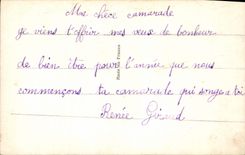 Ma chère camarade
je viens t'offrir mes veux de bonheur
de bien être pour l'année que nous
commençons ta camarade qui songe a toi
Renée Giraud